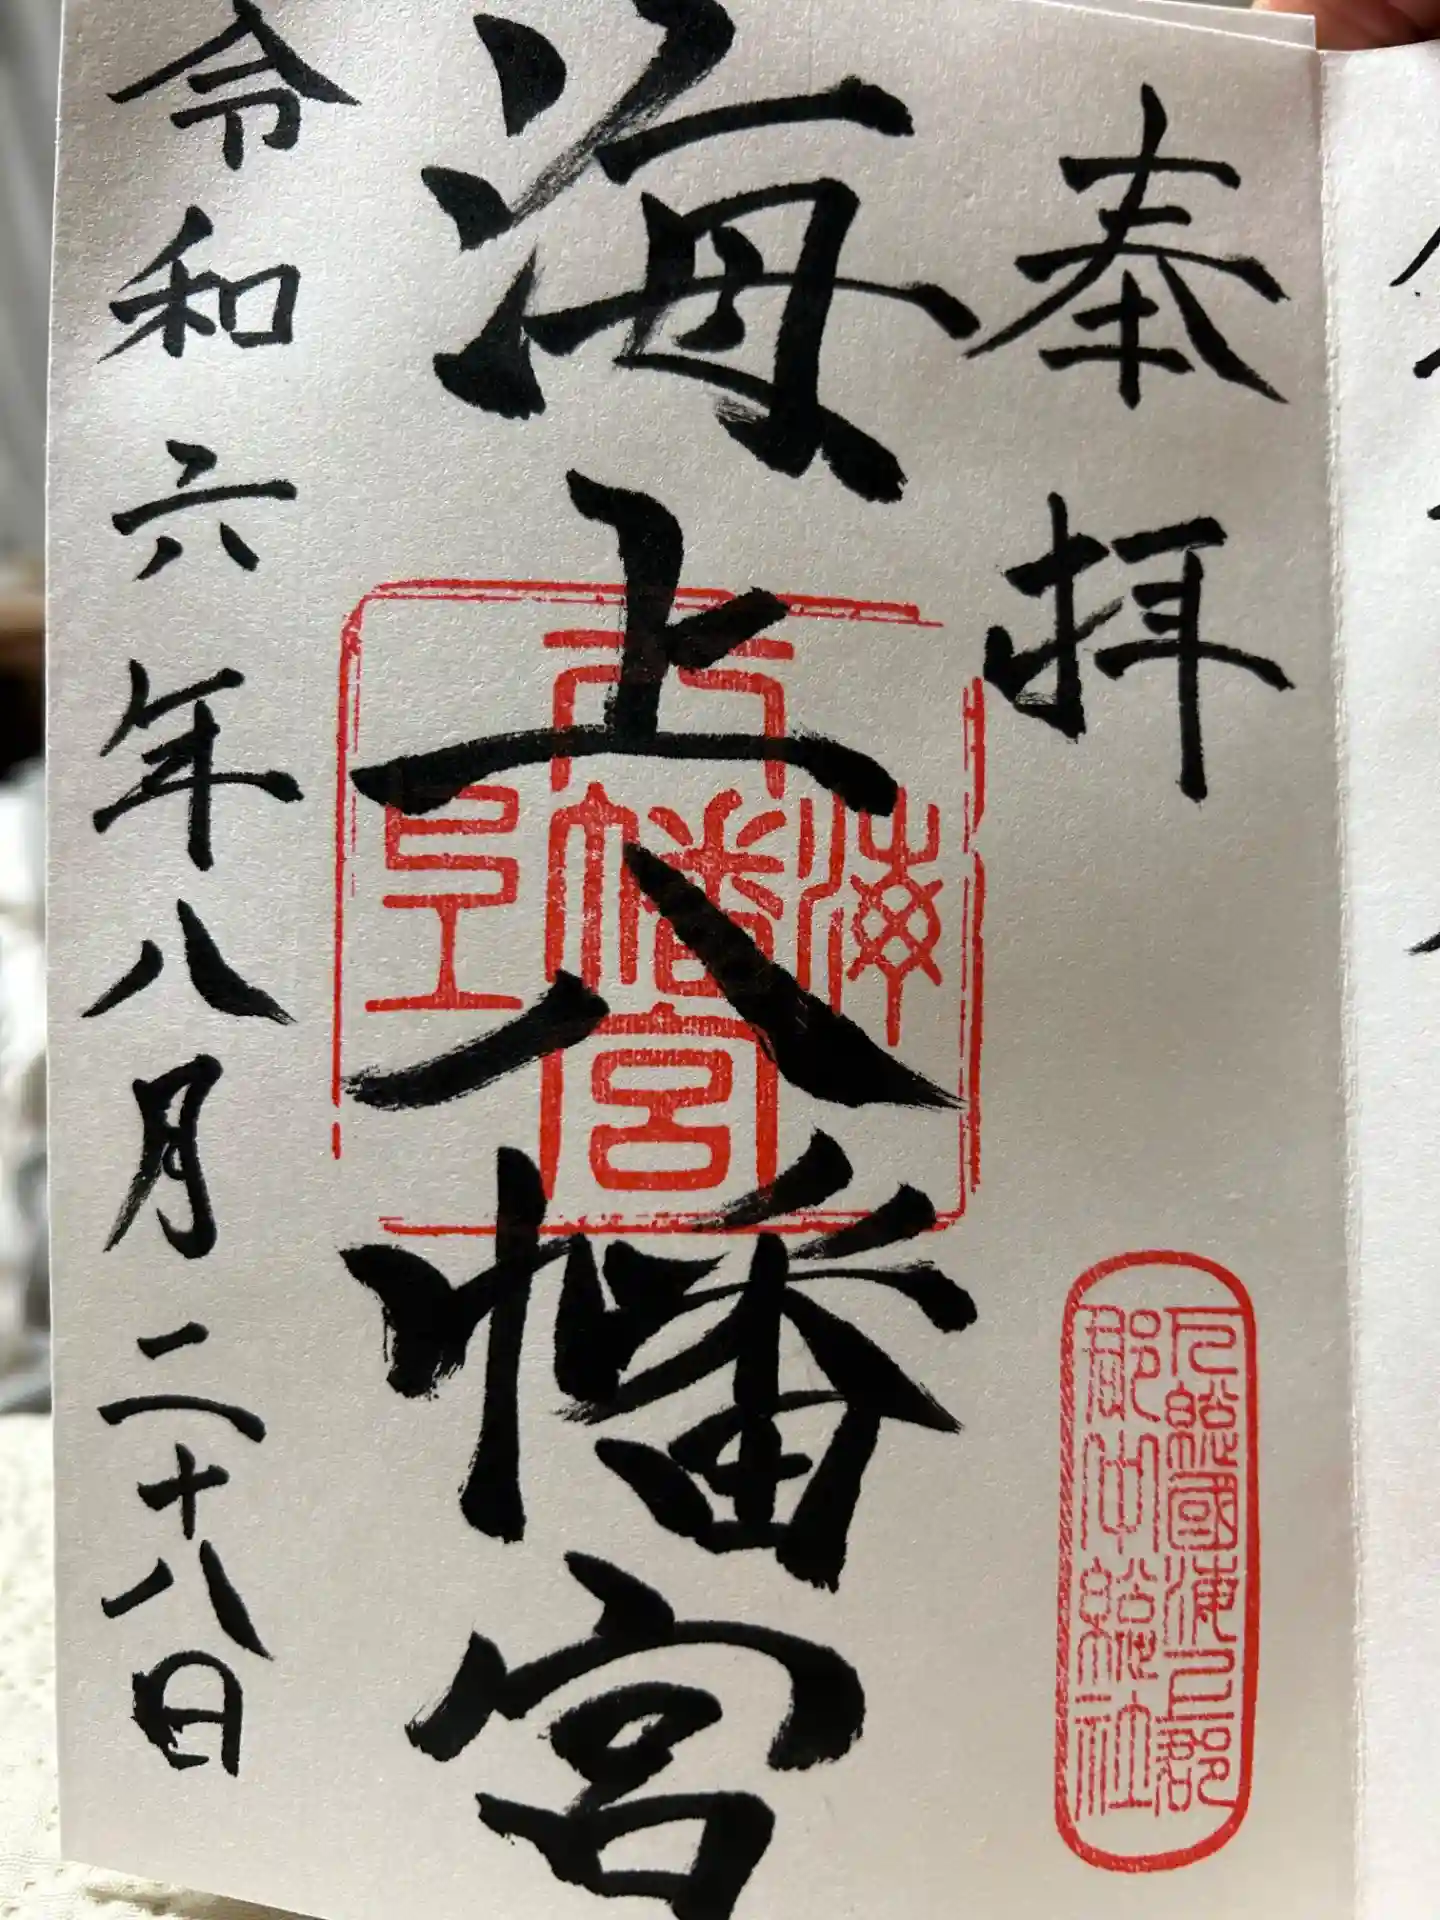 奉拝
下総國海上郡
郡中総社
海上八幡宮
八幡宮
令和六年八月二十八日